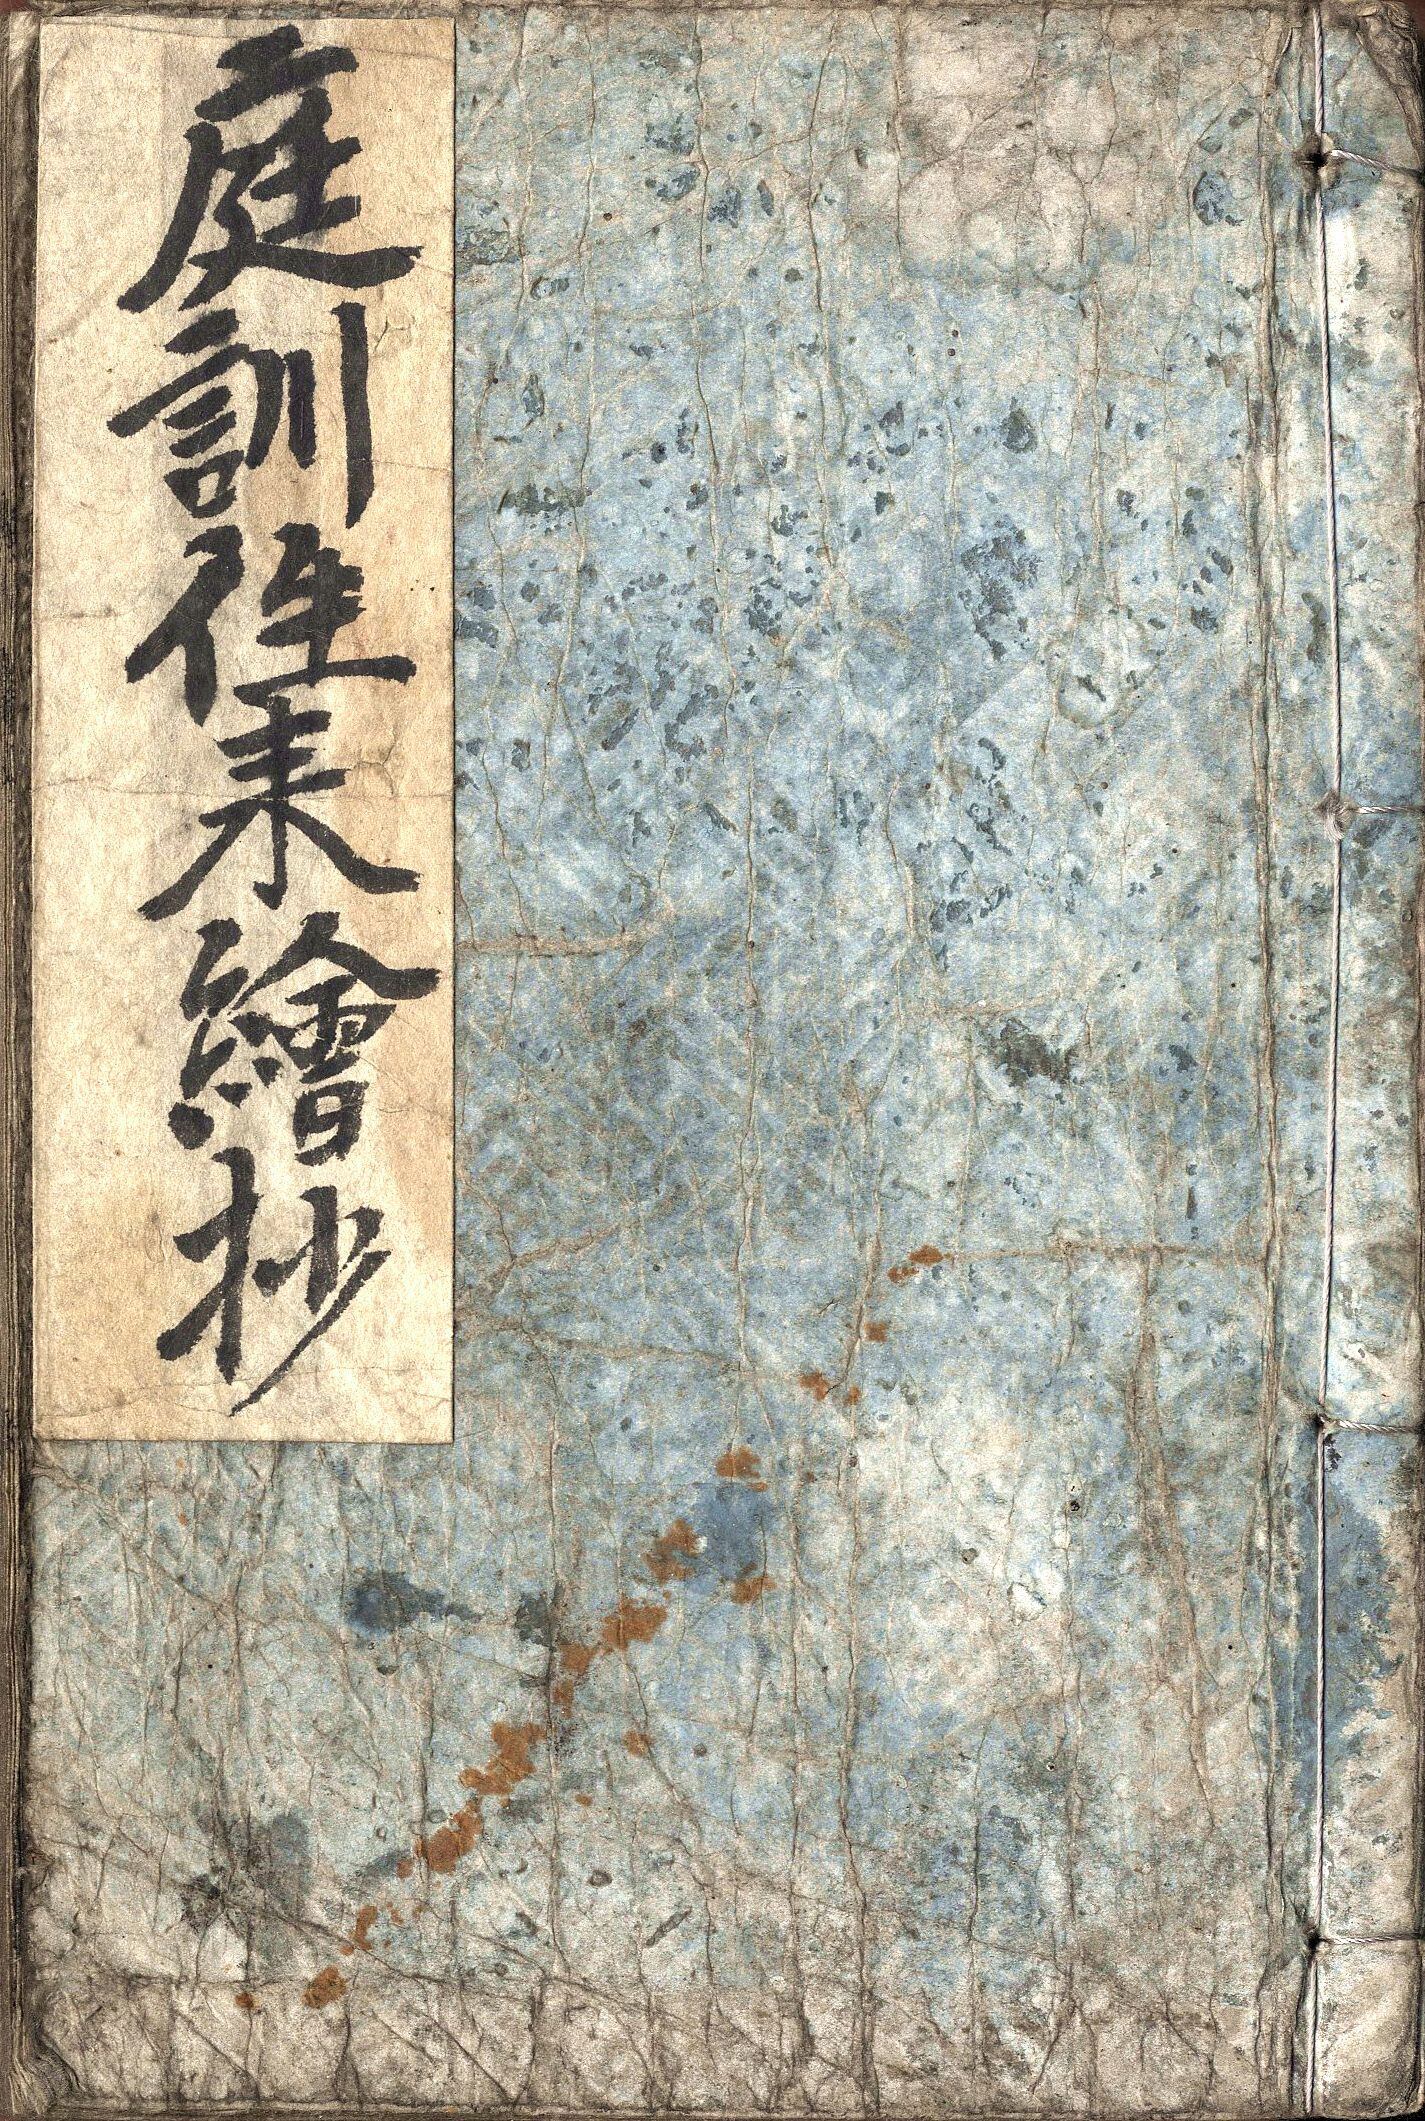 庭訓徃来繪抄